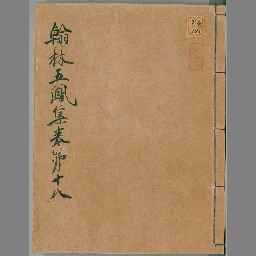 翰林五鳳集卷第十八